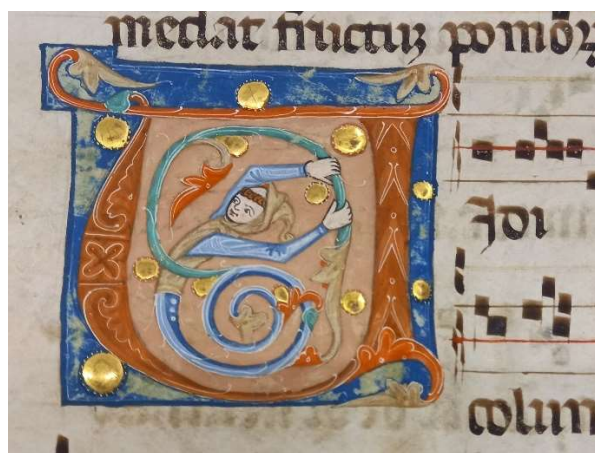 medat fructuz pomoꝝ
VIdi
colum